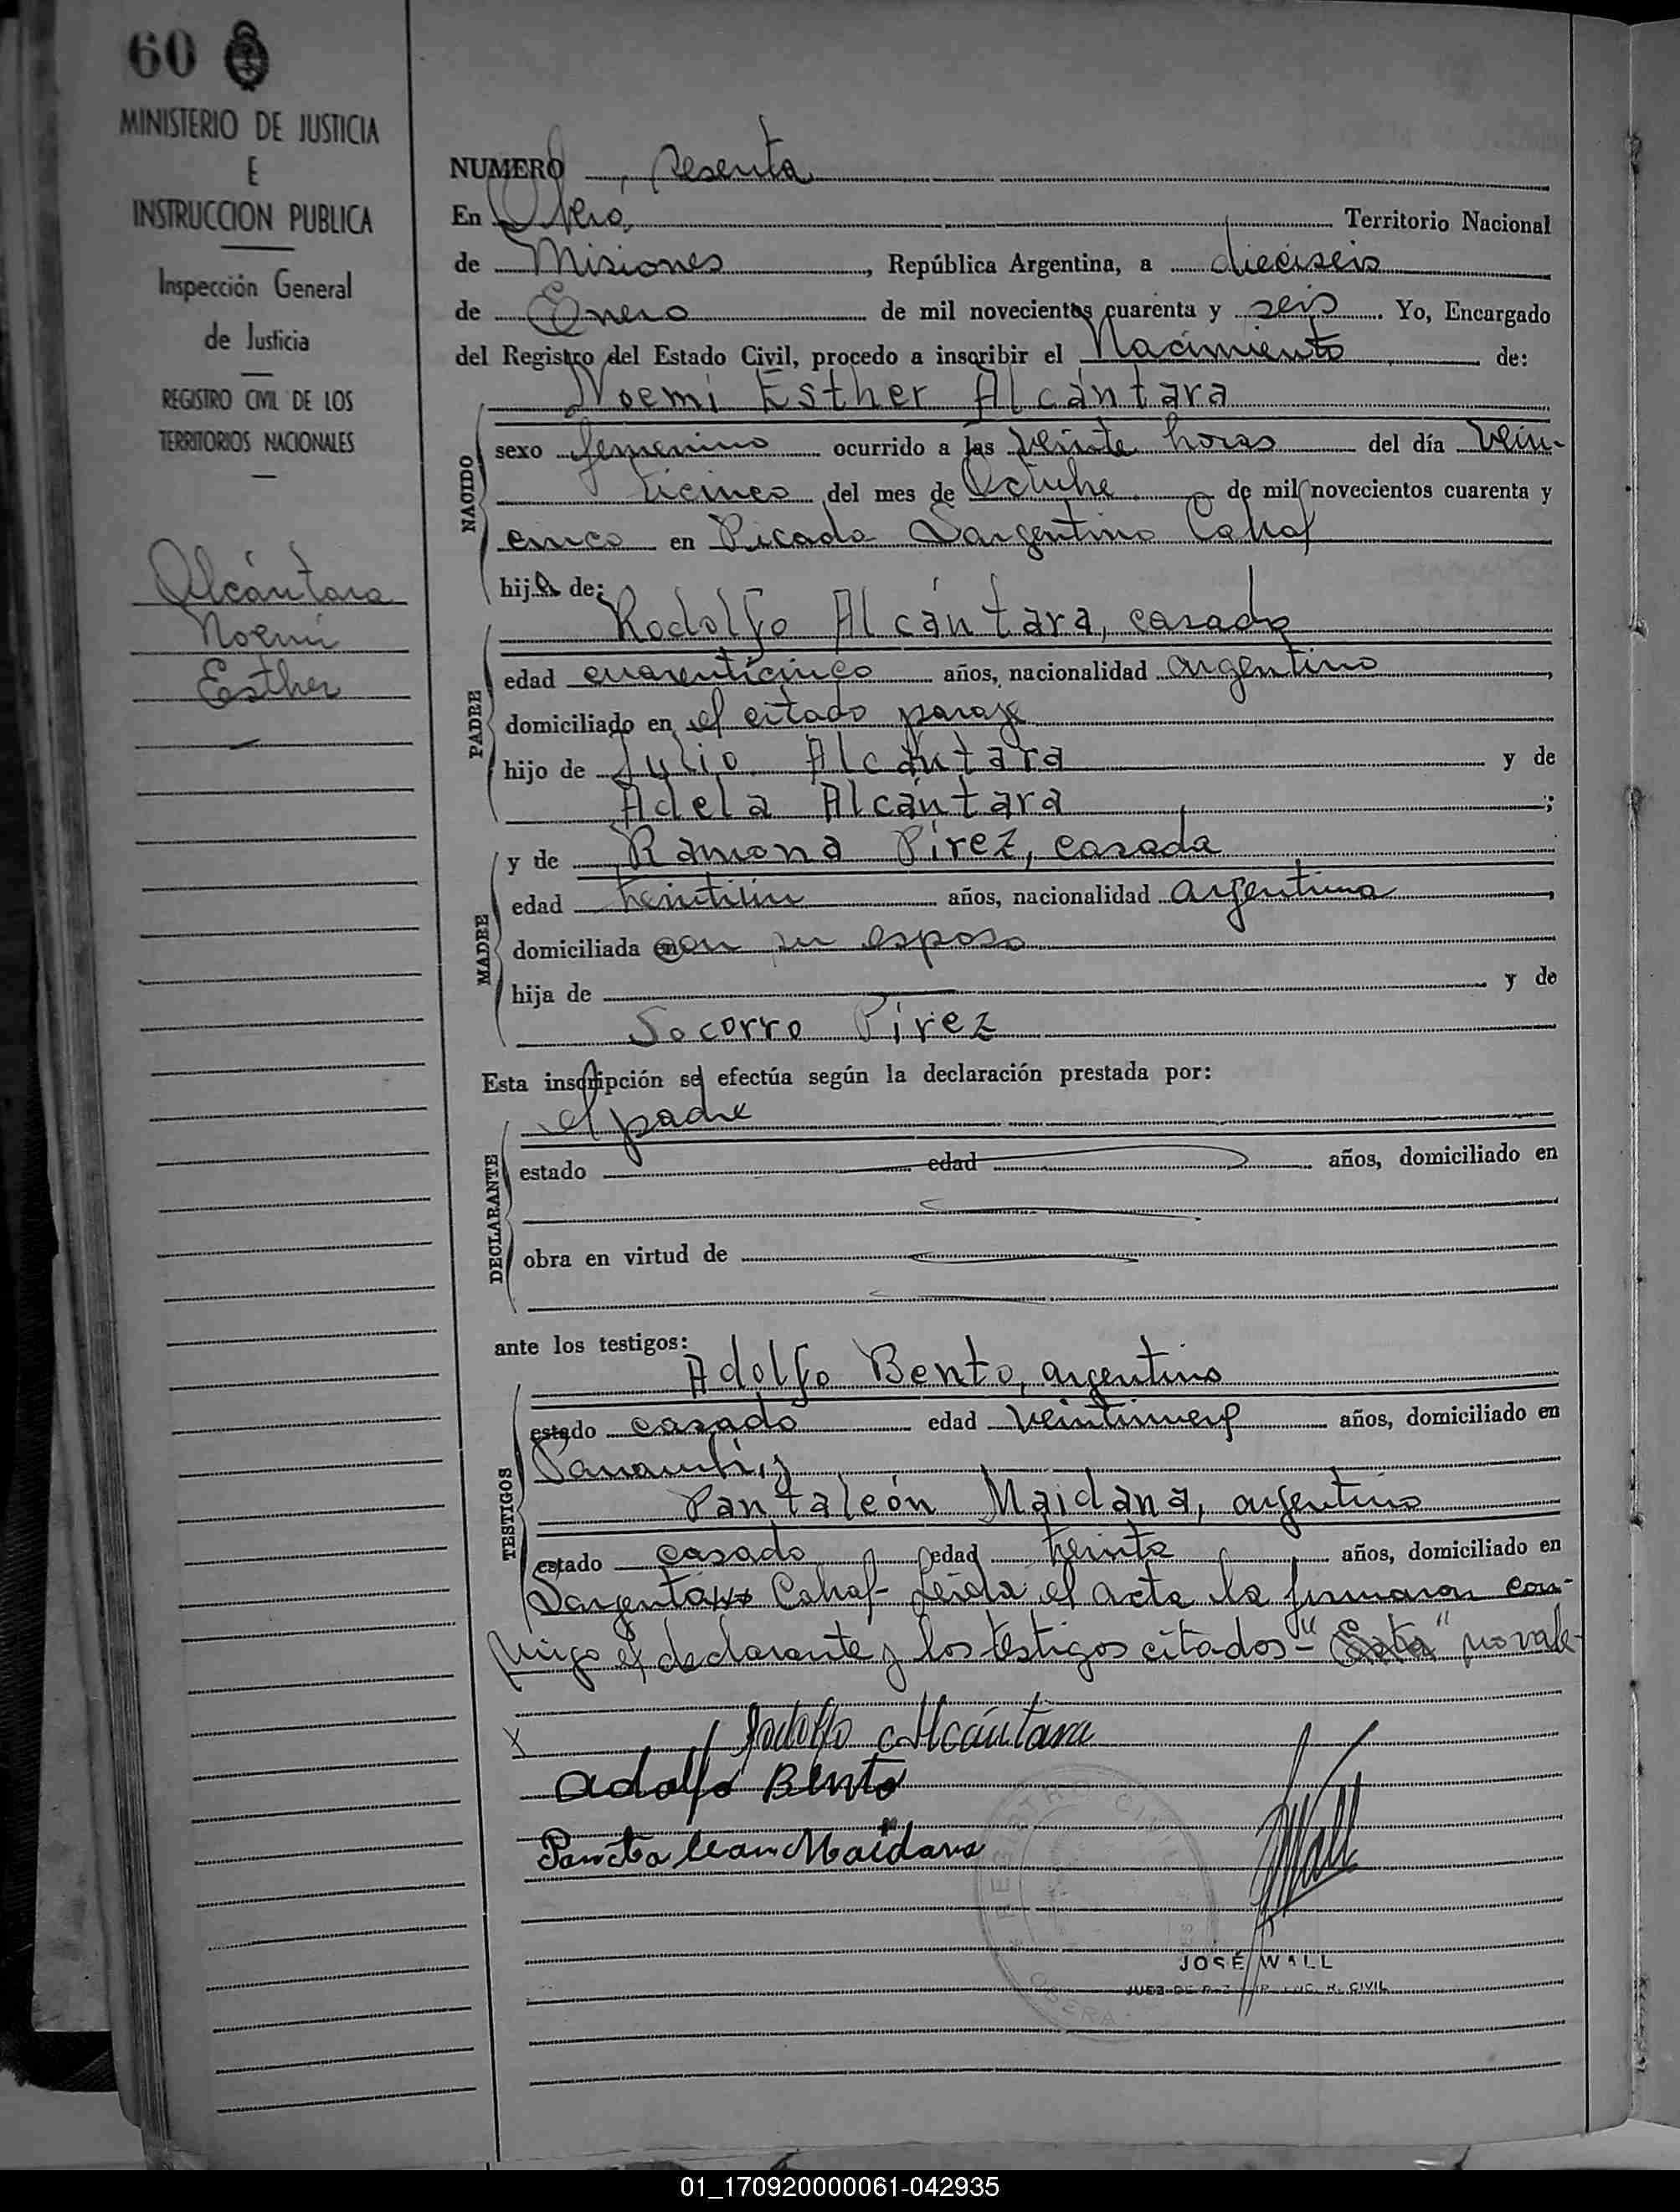 60
MINISTERIO DE JUSTICIA
E
INSTRUCCION PUBLICA
Inspección General
de Justicia
REGISTRO CIVIL DE LOS
TERRITORIOS NACIONALES
Alcántara
Noemí
Esther
NUMERO sesenta
En Obera, Territorio Nacional
de Misiones, República Argentina, a dieciseis
de Enero de mil novecientos cuarenta y seis. Yo, Encargado
del Registro del Estado Civil, procedo a inscribir el Nacimiento de:
Noemí Esther Alcántara
NACIDO
sexo femenino ocurrido a las veinte horas del día vein-
ticinco del mes de Octubre de mil novecientos cuarenta y
cinco en Picada Sargentino Cabral
hija de:
Rodolfo Alcántara, casado
PADRE
edad cuarenticinco años, nacionalidad argentino
domiciliado en el citado paraje
hijo de Julio Alcántara y de
Adela Alcántara;
y de Ramona Pírez, casada
MADRE
edad treintiun años, nacionalidad argentina
domiciliada con su esposo
hija de y de
Socorro Pírez
Esta inscripción se efectúa según la declaración prestada por:
el padre
DECLARANTE
estado edad años, domiciliado en
obra en virtud de
ante los testigos:
Adolfo Bento, argentino
TESTIGOS
estado casado edad veintinueve años, domiciliado en
Panambí, y
Pantaleón Maidana, argentino
estado casado edad treinta años, domiciliado en
Cabral- Leída el acta la firmaron con-
migo el declarante y los testigos citados-" " no vale-
x Rodolfo Alcántara
Adolfo Bento
Panctalean Maidana
REGISTRO CIVIL
OBERA
JOSÉ WALL
JUEZ DE PAZ ENC. R. CIVIL
01_170920000061-042935